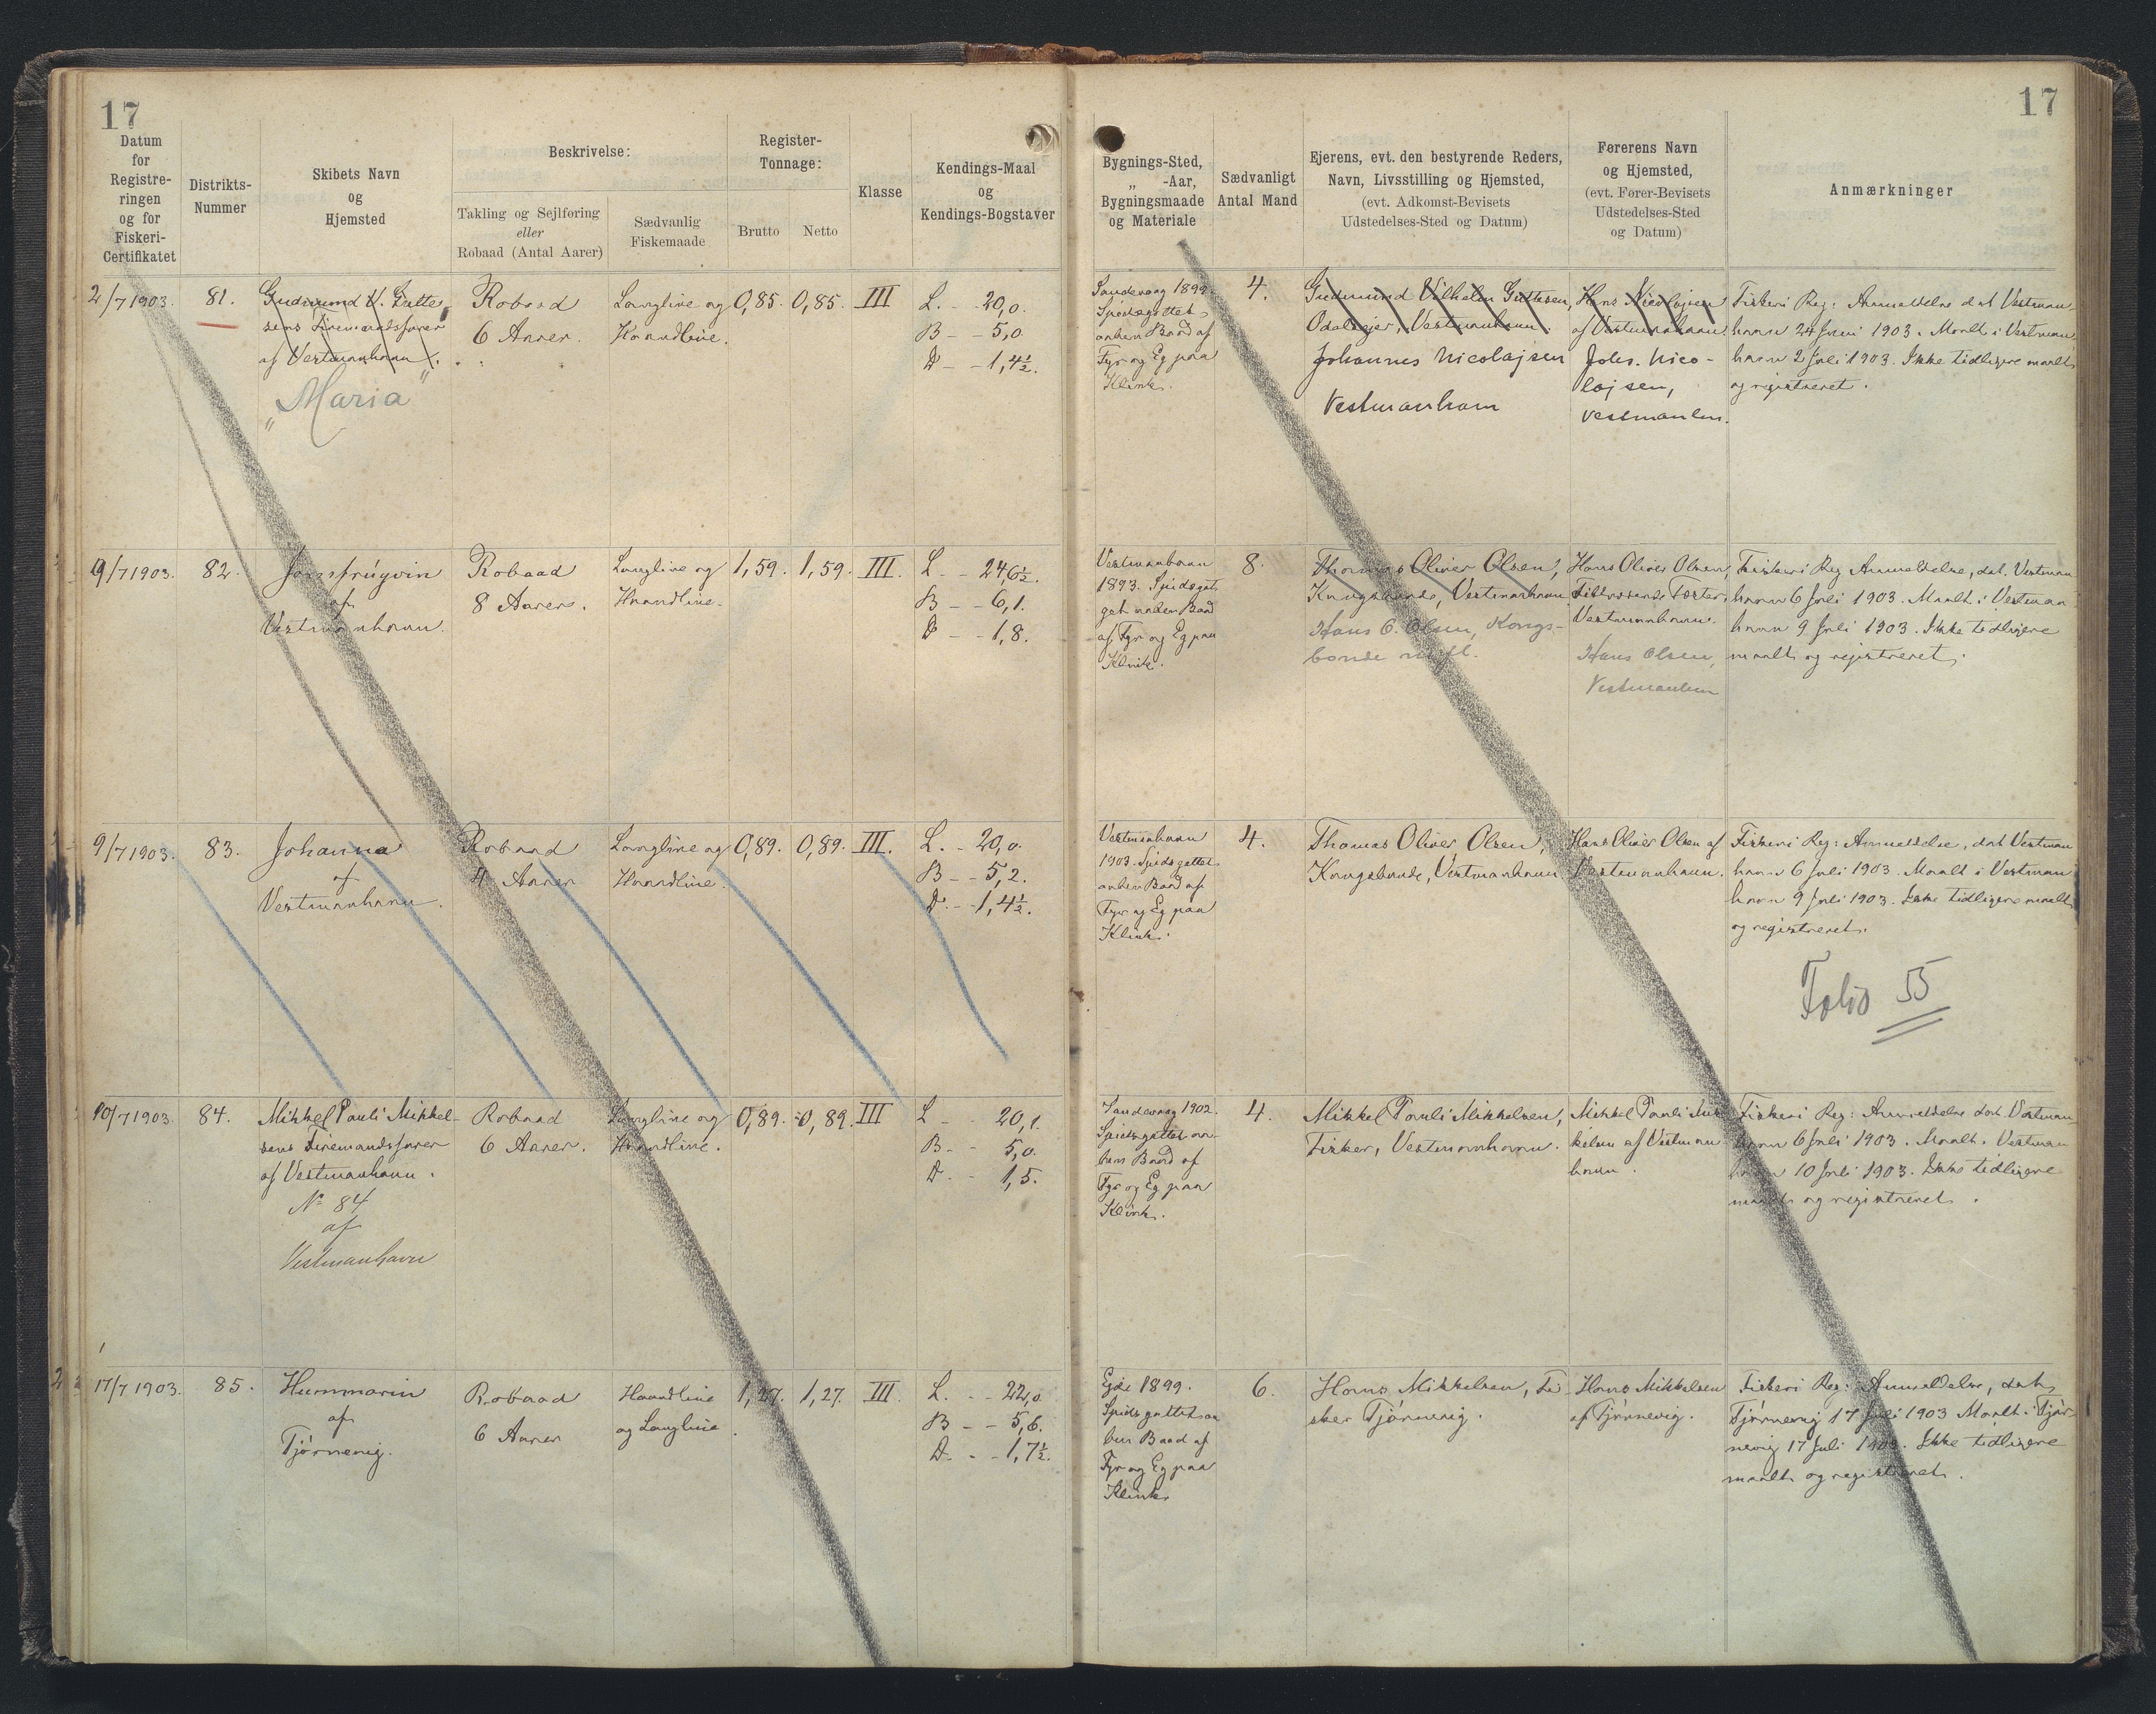 17
17
Datum
for
Registre-
ringen
og for
Fiskeri-
Certifikatet
Distrikts-
Nummer
Skibets Navn
og
Hjemsted
Beskrivelse:
Takling og Sejlføring
eller
Robaad (Antal Aarer)
Sædvanlig
Fiskemaade
Register-
Tonnage:
Brutto
Netto
Klasse
Kendings-Maal
og
Kendings-Bogstaver
Bygnings-Sted,
„ -Aar,
Bygningsmaade
og Materiale
Sædvanligt
Antal Mand
Ejerens, evt. den bestyrende Reders,
Navn, Livsstilling og Hjemsted,
(evt. Adkomst-Bevisets
Udstedelses-Sted og Datum)
Førerens Navn
og Hjemsted,
(evt. Fører-Bevisets
Udstedelses-Sted
og Datum)
Anmærkninger
2/7 1903.
81.
Gudmund V. Gutte-
sens Firemandsfarer
af Vestmanhavn.
"Maria"
Robaad
6 Aarer.
Langline og
Haandline.
0,85.
0,85.
III
L. - 20,0.
B - - 5,0
D - - 1,4½.
Sandevaag 1899
Spidsgattet
aaben Baad af
Fyr og Eg paa
Klink.
4.
Gudmund Vilhelm Guttesen,
Odelsejer, Vestmanhavn.
Johannes Nicolajsen
Vestmanhavn
Hans Nicolajsen
af Vestmanhavn.
Johs. Nico-
lajsen,
Vestmanhn.
Fiskeri Reg: Anmeldelse dat Vestman-
havn 24 Juni 1903. Maalt i Vestman-
havn 2 Juli 1903. Ikke tidligere maalt
og registreret.
9/7 1903.
82.
Jomfrúgvin
af
Vestmanhavn.
Robaad
8 Aarer.
Langline og
Haandline.
1,59.
1,59.
III.
L - - 24,6½.
B - - 6,1.
D - - 1,8.
Vestmanhavn
1893. Spidsgat-
get aaben Baad
af Fyr og Eg paa
Klink.
8.
Thomas Oliver Olsen,
Kongsbonde, Vestmanhavn
Hans O. Olsen, Kongs-
bonde
Hans Oliver Olsen,
Vestmanhavn.
Hans Olsen,
Vestmanhvn
Fiskeri Reg Anmeldelse, dat. Vestman
havn 6 Juli 1903. Maalt i Vestman
havn 9 Juli 1903. Ikke tidligere
maalt og registreret.
9/7 1903.
83.
Johanna
af
Vestmanhavn.
Robaad
4 Aarer
Langline og
Haandline.
0,89.
0,89.
III.
L. - 20,0.
B - - 5,2.
D - - 1,4½.
Vestmanhavn
1903. Spidsgattet
aaben Baad af
Fyr og Eg paa
Klink.
4.
Thomas Oliver Olsen,
Kongsbonde, Vestmanhavn.
Hans Oliver Olsen af
Vestmanhavn.
Fiskeri Reg: Anmeldelse, dat Vestman
havn 6 Juli 1903. Maalt i Vestman
havn 9 Juli 1903. Ikke tidligere maalt
og registreret.
Folio 55
10/7 1903.
84.
Mikkel Pauli Mikkel-
sens Firemandsfarer
af Vestmanhavn.
No 84
af
Vestmanhavn
Robaad
6 Aarer.
Langline og
Haandline.
0,89.
0,89.
III
L - 20,1.
B - - 5,0.
D - - 1,5.
Sandevaag 1902.
Spidsgattet aa-
ben Baad af
Fyr og Eg paa
Klink.
4.
Mikkel Pauli Mikkelsen,
Fisker, Vestmanhavn.
Mikkel Pauli Mik
kelsen af Vestman
havn.
Fiskeri Reg: Anmeldelse dat. Vestman-
havn 6 Juli 1903. Maalt. Vestman
havn 10 Juli 1903. Ikke tidligere
maalt og registreret.
17/7 1903.
85.
Hummarin
af
Tjørnevig.
Robaad
6 Aarer
Haandline
og Langline.
1,27.
1,27.
III.
L. - - 22,0
B - - 5,6.
D - - 1,7½.
Ejde 1899.
Spidsgattet aa
ben Baad af
Fyr og Eg paa
Klink
6.
Hans Mikkelsen, Fi
sker Tjørnevig.
Hans Mikkelsen
af Tjørnevig.
Fiskeri Reg: Anmeldelse, dat
Tjørnevig 17 Juli 1903 Maalt. Tjør-
nevig 17 Juli 1903. Ikke tidligere
maalt og registreret.